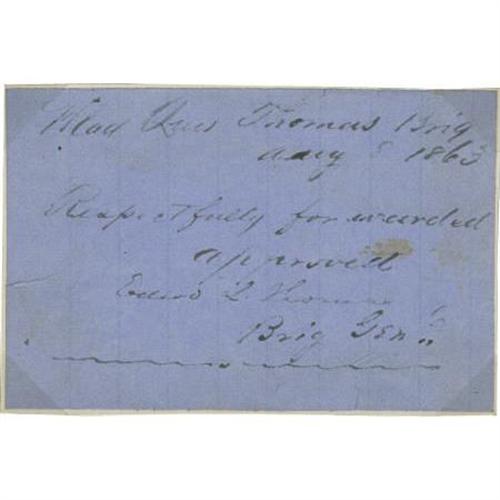 Head Qrs Thomas Brig
Aug 8 1863
Respectfully forwarded
approved
Edwd L Thomas
Brig Genl